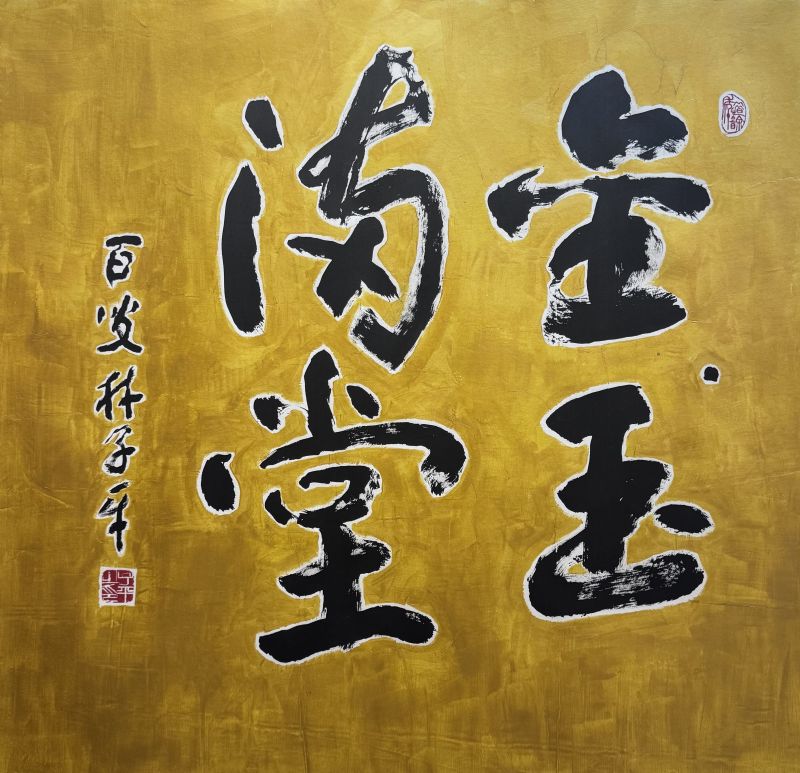 金玉
满堂
百叟林子平